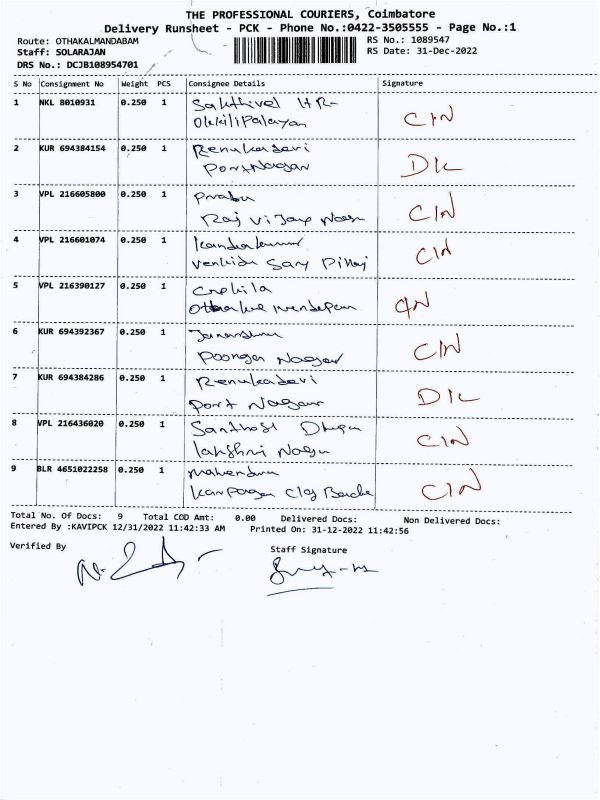 THE PROFESSIONAL COURIERS, Coimbatore
Delivery Runsheet - PCK - Phone No.:0422-3505555 - Page No.:1
Route: OTHAKALMANDABAM RS No.: 1089547
Staff: SOLARAJAN RS Date: 31-Dec-2022
DRS No.: DCJB108954701
S No Consignment No Weight PCS Consignee Details Signature
1 NKL 8010931 0.250 1 Sakthivel HR-
CIN
2 KUR 694384154 0.250 1 Renukadevi
Port Nagar DIL
3 VPL 216605800 0.250 1 Prabu
Raj Vijay Nagar CIN
4 VPL 216601074 0.250 1
CIN
5 VPL 216390127 0.250 1
CIN
6 KUR 694392367 0.250 1
Poongar Nagar CIN
7 KUR 694384286 0.250 1 Renukadevi
Port Nagar DIL
8 VPL 216436020 0.250 1 Santhosh
lakshmi Nagar CIN
9 BLR 4651022258 0.250 1
CIN
Total No. Of Docs: 9 Total COD Amt: 0.00 Delivered Docs: Non Delivered Docs:
Entered By :KAVIPCK 12/31/2022 11:42:33 AM Printed On: 31-12-2022 11:42:56
Verified By Staff Signature